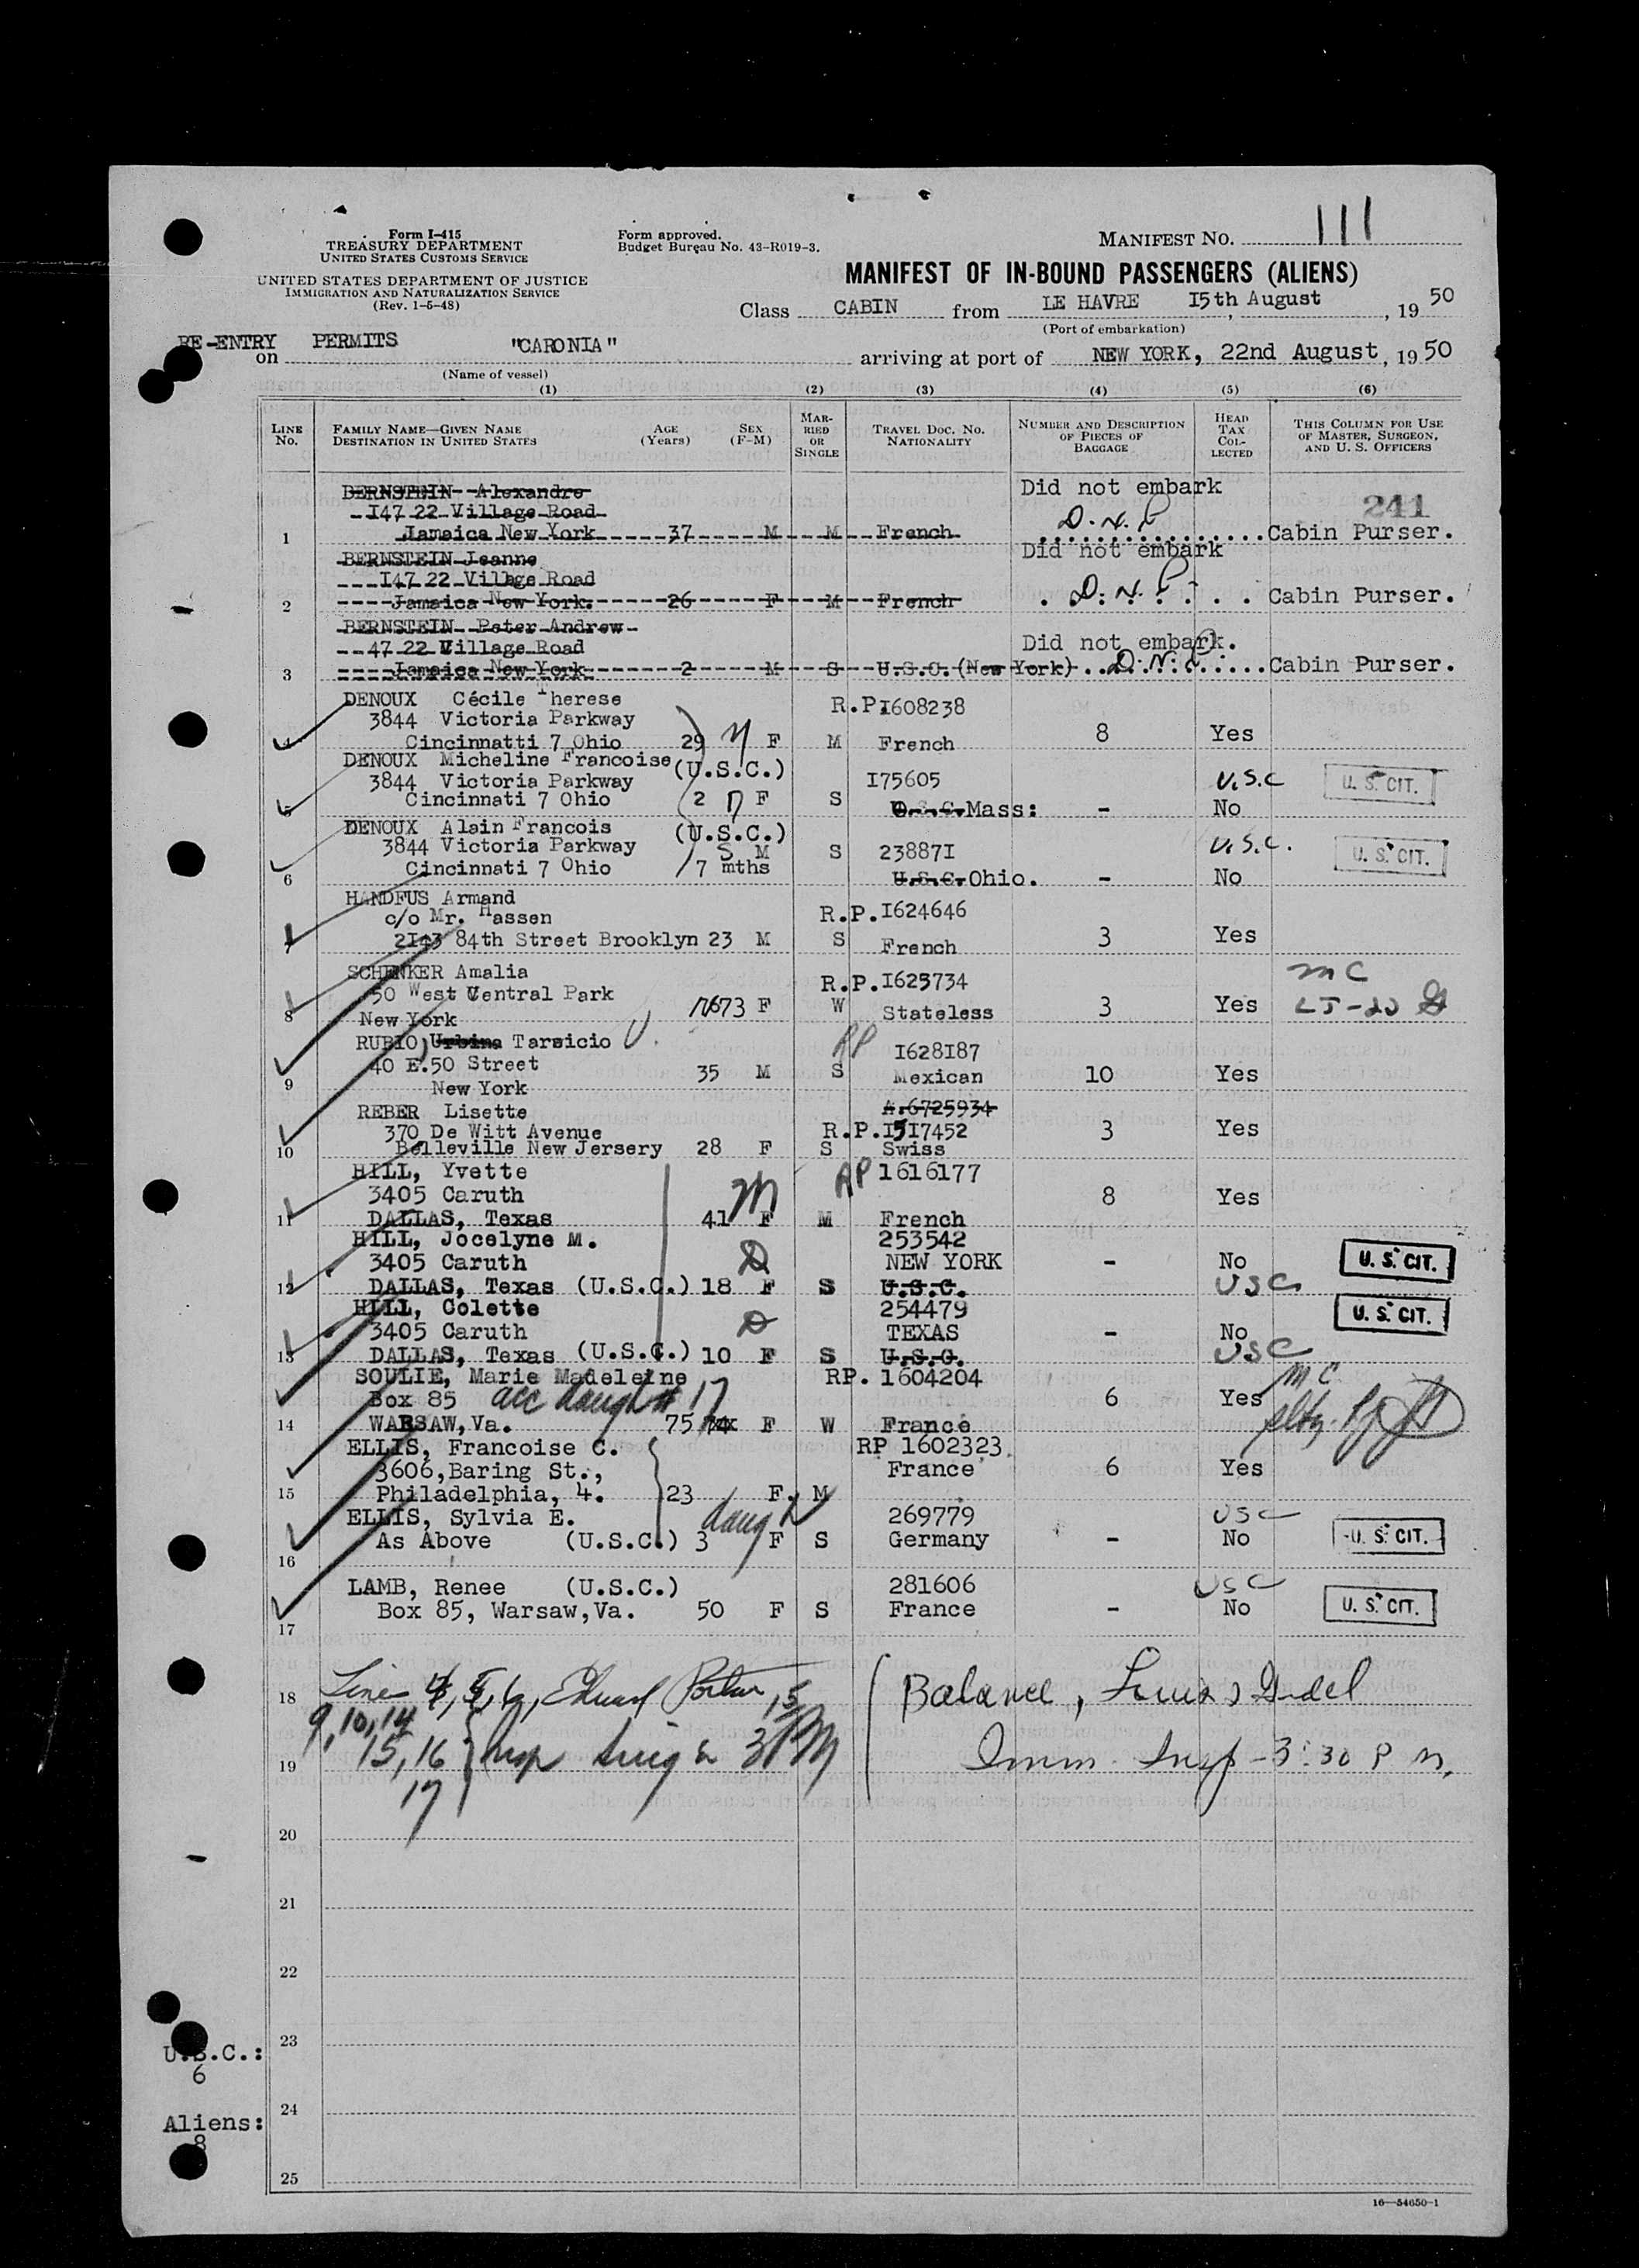 Form I-415
TREASURY DEPARTMENT
UNITED STATES CUSTOMS SERVICE
UNITED STATES DEPARTMENT OF JUSTICE
IMMIGRATION AND NATURALIZATION SERVICE
(Rev. 1-5-48)
Form approved.
Budget Bureau No. 43-R019-3.
MANIFEST NO. 111
MANIFEST OF IN-BOUND PASSENGERS (ALIENS)
Class CABIN from LE HAVRE I5th August, 1950
(Port of embarkation)
RE-ENTRY PERMITS
on "CARONIA" arriving at port of NEW YORK, 22nd August, 1950
(Name of vessel)
(1) (2) (3) (4) (5) (6)
LINE No. FAMILY NAME—GIVEN NAME DESTINATION IN UNITED STATES AGE (Years) SEX (F-M) MARRIED OR SINGLE TRAVEL DOC. NO. NATIONALITY NUMBER AND DESCRIPTION OF PIECES OF BAGGAGE HEAD TAX COLLECTED THIS COLUMN FOR USE OF MASTER, SURGEON, AND U. S. OFFICERS
BERNSTEIN Alexandre Did not embark 241
I47 22 Village Road D.N.P
1 Jamaica New York 37 M M French Cabin Purser.
BERNSTEIN Jeanne Did not embark
I47 22 Village Road
2 Jamaica New York. 26 F M French D.N.P. Cabin Purser.
BERNSTEIN Peter Andrew
47 22 Village Road Did not embark.
3 Jamaica New York 2 M S U.S.C. (New York) D.N.P. Cabin Purser.
DENOUX Cécile Therese R.P. I608238
3844 Victoria Parkway
4 Cincinnatti 7 Ohio 29 M F M French 8 Yes
DENOUX Micheline Francoise (U.S.C.)
3844 Victoria Parkway I75605 U.S.C U. S. CIT.
5 Cincinnati 7 Ohio 2 F S U.S.C. Mass: - No
DENOUX Alain Francois (U.S.C.)
3844 Victoria Parkway S M S 23887I U.S.C. U. S. CIT.
6 Cincinnati 7 Ohio 7 mths U.S.C. Ohio. - No
HANDFUS Armand
c/o Mr. Hassen R.P. I624646
7 2I43 84th Street Brooklyn 23 M S French 3 Yes
SCHENKER Amalia R.P. I625734 MC
50 West Central Park
8 New York 73 F W Stateless 3 Yes
RUBIO, Urbina Tarsicio RP I628I87
40 E.50 Street
9 New York 35 M S Mexican 10 Yes
REBER Lisette A.6725934
370 De Witt Avenue R.P. I5I7452 3 Yes
10 Belleville New Jersery 28 F S Swiss
HILL, Yvette RP 1616177
3405 Caruth 8 Yes
11 DALLAS, Texas 41 M F M French
HILL, Jocelyne M. 253542
3405 Caruth D NEW YORK - No U. S. CIT.
12 DALLAS, Texas (U.S.C.) 18 F S U.S.C. USC
HILL, Colette 254479 U. S. CIT.
3405 Caruth D TEXAS - No
13 DALLAS, Texas (U.S.C.) 10 F S U.S.C. USC
SOULIE, Marie Madeleine RP. 1604204 MC
Box 85 acc daught # 17 6 Yes
14 WARSAW, Va. 75 74 F W France
ELLIS, Francoise C. RP 1602323.
3606, Baring St., France 6 Yes
15 Philadelphia, 4. 23 F. M
ELLIS, Sylvia E. daug 269779 USC
As Above (U.S.C.) 3 F S Germany - No U. S. CIT.
16
LAMB, Renee (U.S.C.) 281606 USC
Box 85, Warsaw, Va. 50 F S France - No U. S. CIT.
17
18 Line 4, 5, 6, Balance, Louis
9, 10, 14
19 15, 16 Insp 3 PM Imm. Insp - 3:30 P M.
17
20
21
22
23
U.S.C.:
6
24
Aliens:
8
25
16—54650-1